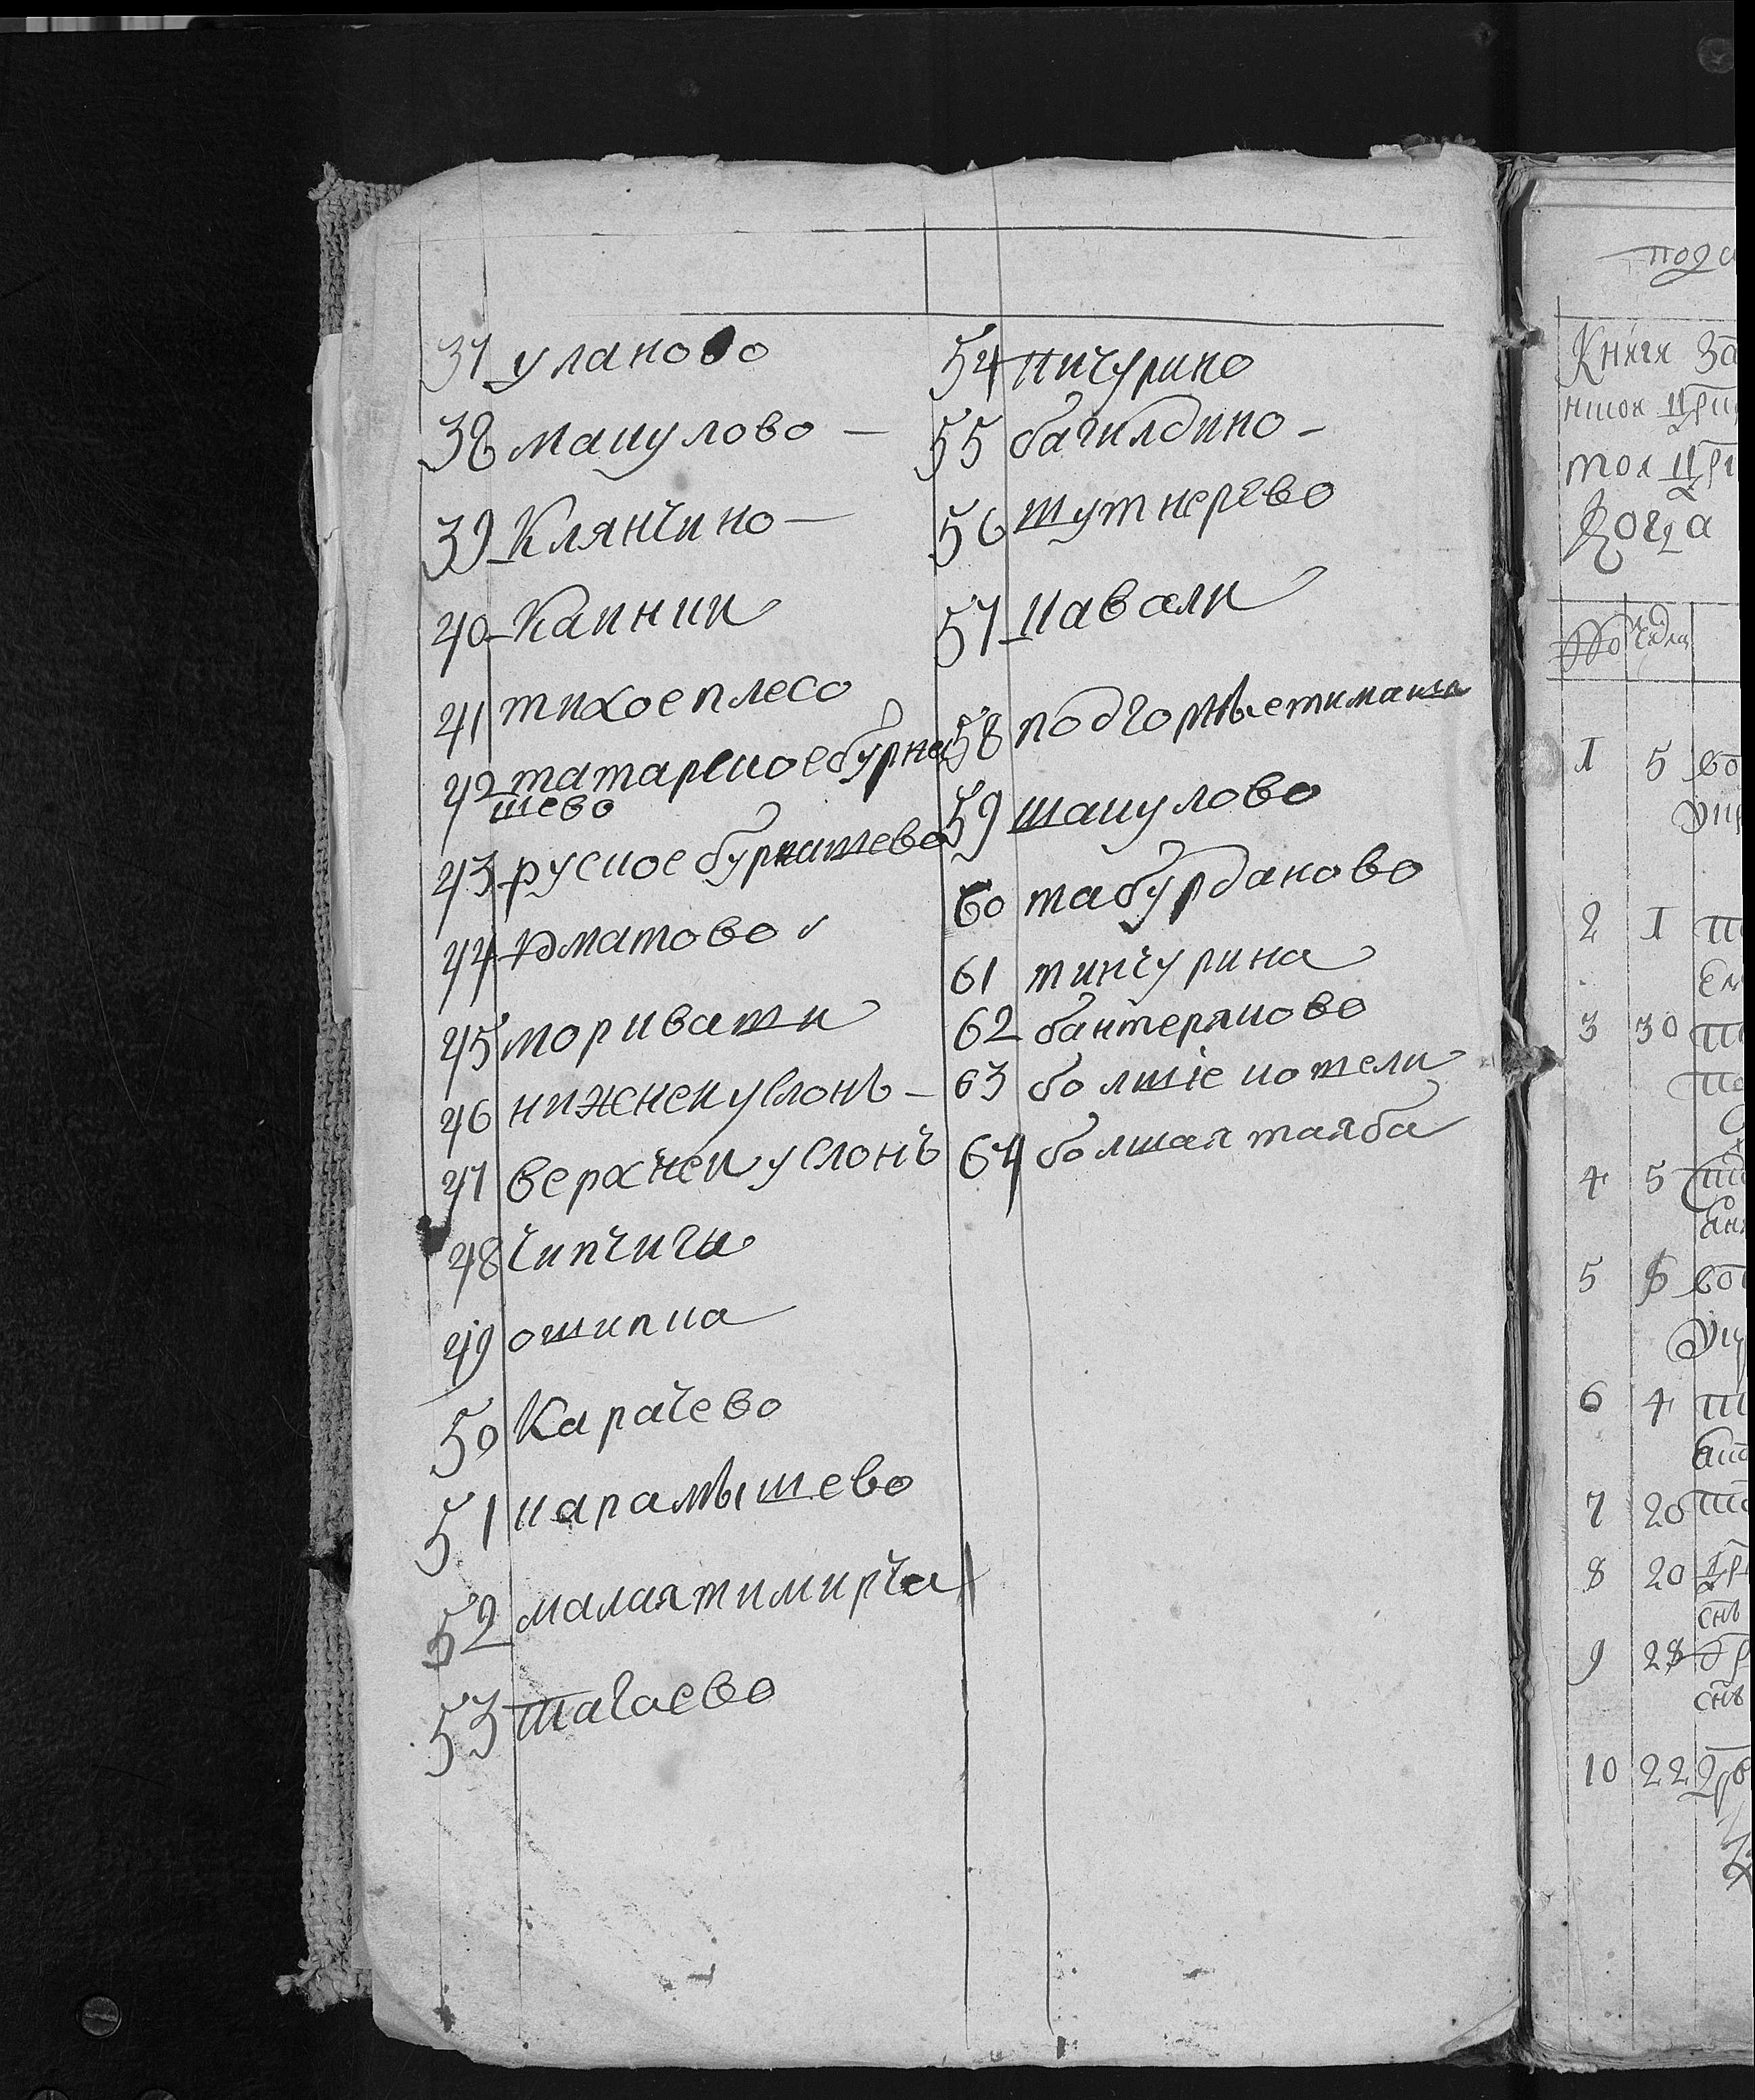 37 уланово
38 макулово —
39 Клянчино —
40 Каинки
41 тихоеплесо
42 татарскоебурна
шево
43 рускоебурнашево
44 Юматово
45 мориваши
46 нижнеиуслонъ —
47 верхнеиуслонъ
48 Чипчиги
49 ошипка
50 Карачево
51 карамышево
52 малаятимирчи
53 тагаево
54 пичурино
55 багилдино —
56 шутнерево
57 кавали
58 подгорныетимаши
59 шакулово
60 табурданово
61 тинчурина
62 бантеряково
63 болшіе кошели
64 болшая таяба
подс
Книги За
нток при
тои при
Когда
1 5 во
2 1
3 30
4 5
5 5 во
6 4
7 20
8 20
снъ
9 28
снъ
10 22